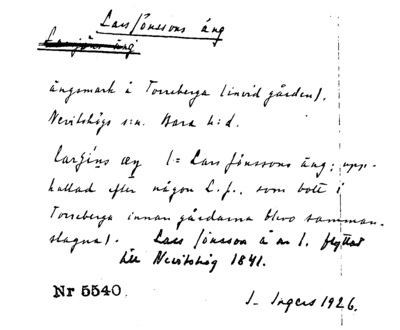 Lars Jönssons äng
Larsjöns äng
ängsmark å Torreberga (invid gården).
Nevitshögs s:n. Bara h:d.
larjins æŋ (= Lars Jönssons äng; upp-
kallad efter någon L. J., som bott i
Torreberga innan gårdarna blevo samman-
slagna). Lars Jönsson å nr 1. flyttad
till Nevitshög 1841.
Nr 5540
I. Ingers 1926.